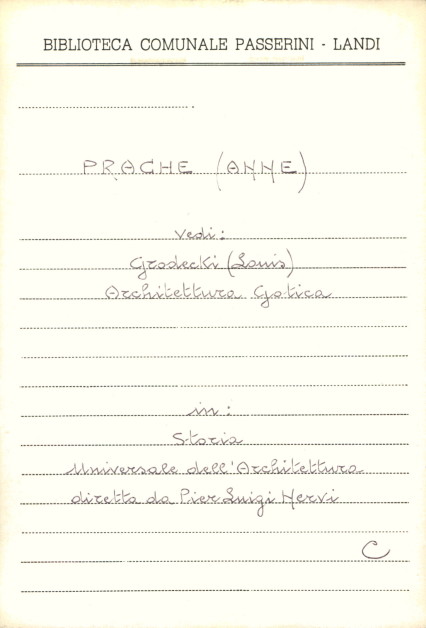 BIBLIOTECA COMUNALE PASSERINI - LANDI
PRACHE (ANNE)
vedi:
Grodecki (Louis)
Architettura Gotica
in:
Storia
Universale dell'Architettura
diretta da Pier Luigi Nervi
C